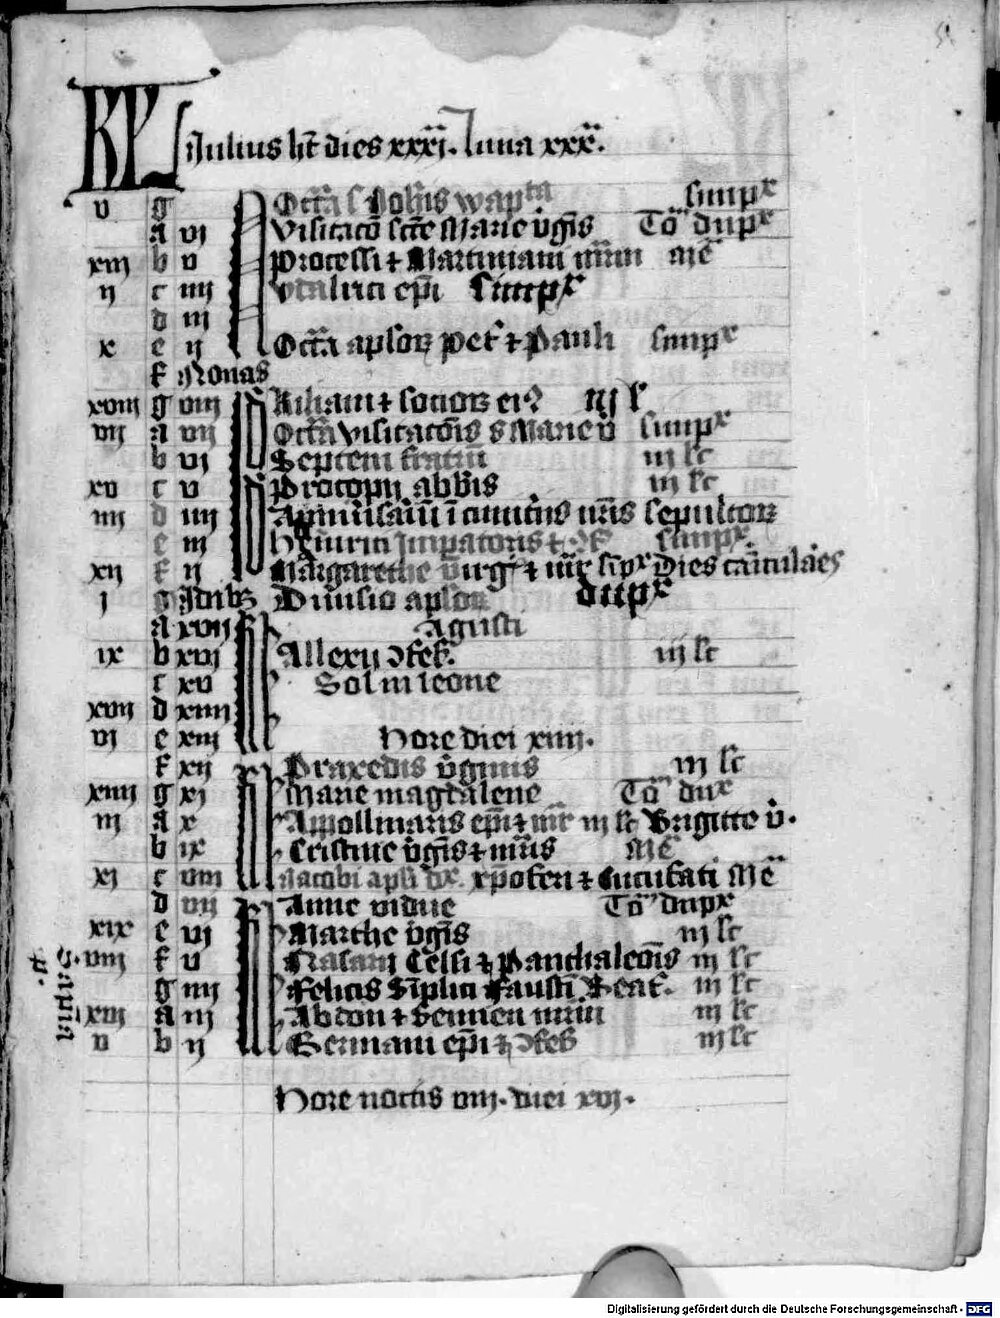 KL Julius ht dies xxxj. luna xxx.
v g Octa s Johis wapta simpx
a vj Visitaco scte Marie vgis To dupx
xiij b v Processi & Martiniani mrm Me
ij c iiij Udalrici epi simpx
d iij
x e ij Octa aplorz Pet & Pauli simpx
f Nonas
xviij g viij Kiliani & sociorz ei9 iij l
vij a vij Octa visitatois s Marie v simpx
b vj Septem fratru iij lc
xv c v Procopij abbis iij lc
iiij d iiij sepultorz
e iij Heinrici Impatoris & simpx
xij f ij Margarethe virg & mr simpx Dies caniculares
j g Idibz Diuisio aplorz dupx
a xvij Agusti
ix b xvj Allexij ofes. iij lc
c xv Sol in leone
xvij d xiiij
vj e xiij Hore diei xiiij.
f xij Praxedis vginis iij lc
xiiij g xj Marie magdalene To dux
iij a x Appollinaris epi & mr iij lc Brigitte v.
b ix Cristine vgis & mris Me
xj c viij Jacobi apli dx xpofori & Cucufati Me
d vij Anne vidue To dupx
xix e vj Marthe vgis iij lc
viij f v Nasarij Celsi & Panthaleonis iij lc
g iiij Felicis Simplicii Fausti Beat. iij lc
xiij a iij Abdon & Sennen mrm iij lc
v b ij Germani epi & ofes iij lc
Hore noctis viij. diei xvj.
Digitalisierung gefördert durch die Deutsche Forschungsgemeinschaft - DFG